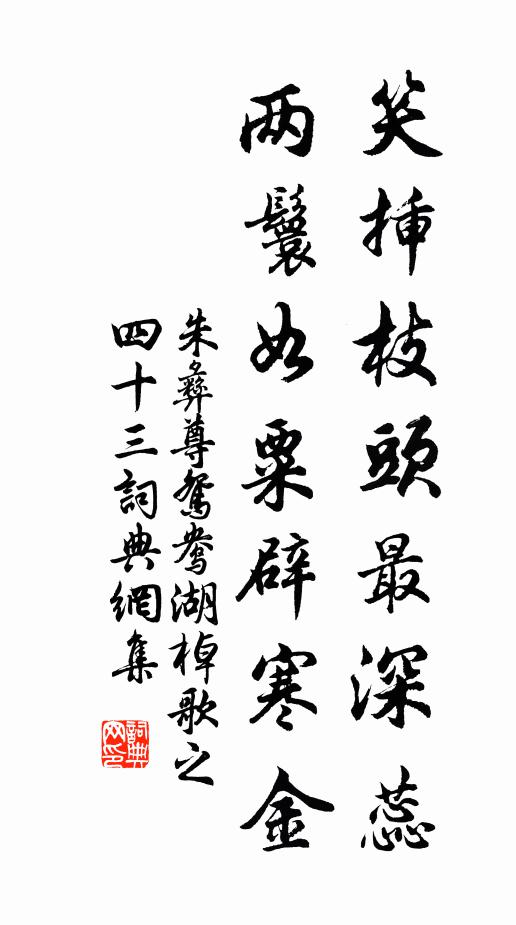 笑挿枝頭最深蕊
两鬟如粟辟寒金
朱彝尊鴛鴦湖棹歌之
四十三詞典網集
詞典網印